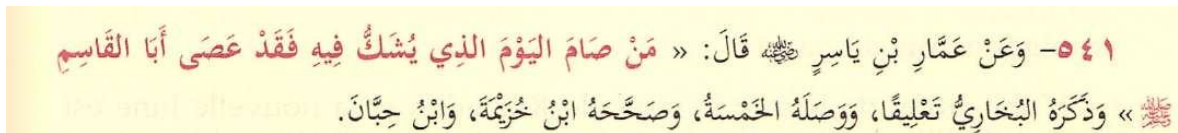 ٥٤١- وَعَنْ عَمَّارِ بْنِ يَاسِرٍ رضي الله عنه قَالَ: « مَنْ صَامَ اليَوْمَ الذِي يُشَكُّ فِيهِ فَقَدْ عَصَى أَبَا القَاسِمِ
ﷺ » وَذَكَرَهُ البُخَارِيُّ تَعْلِيقًا، وَوَصَلَهُ الخَمْسَةُ، وَصَحَّحَهُ ابْنُ خُزَيْمَةَ، وَابْنُ حِبَّانَ.